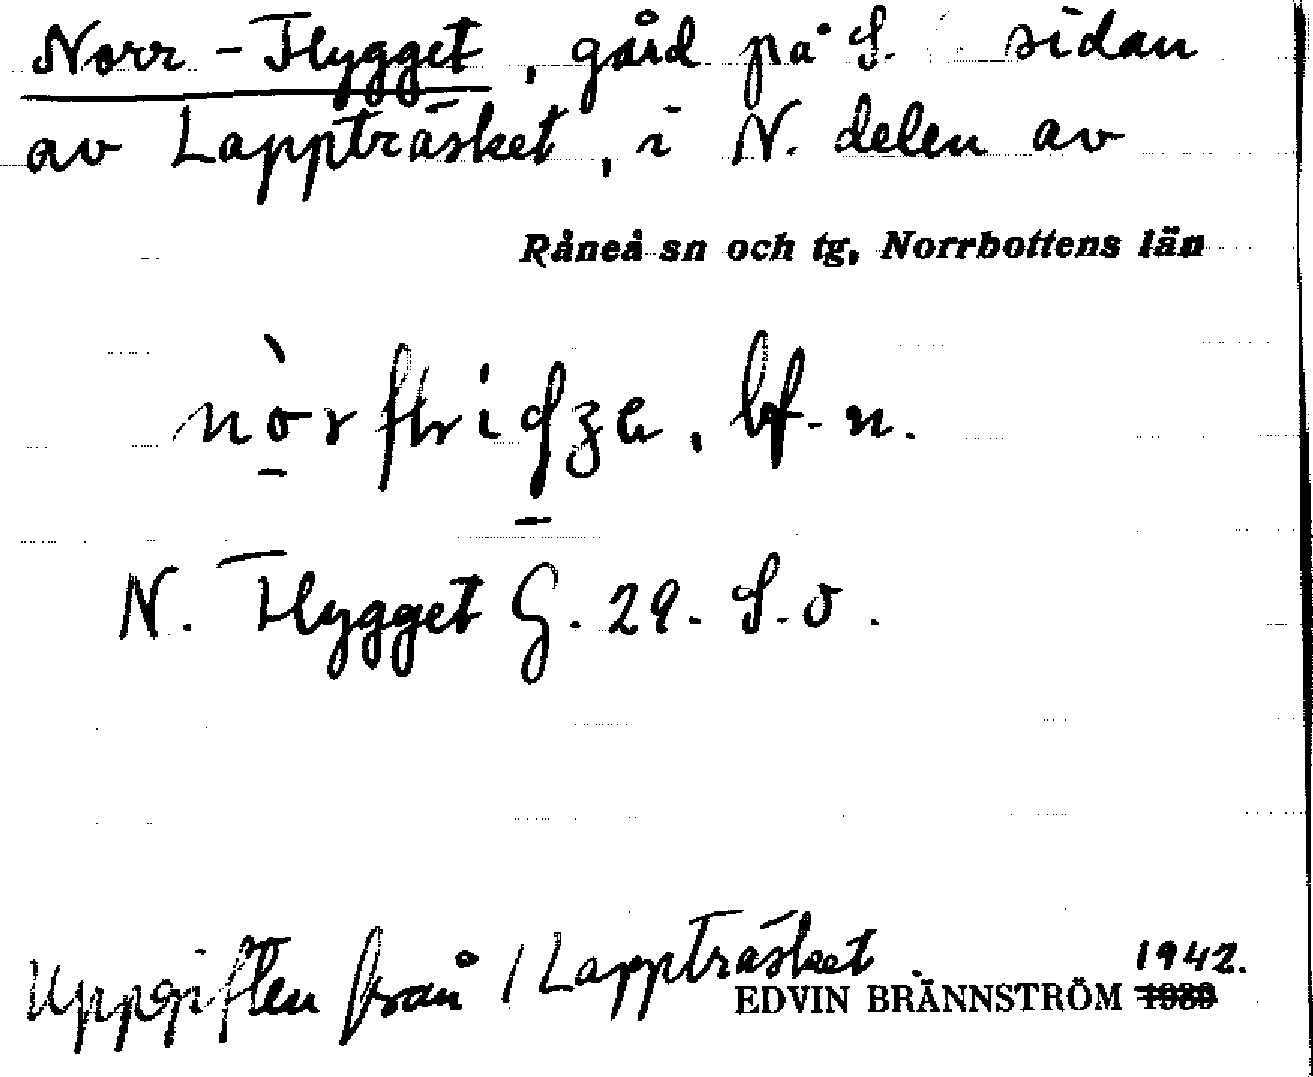 Norr-Flygget, gård på S. sidan
av Lappträsket, i N. delen av
Råneå sn och tg, Norrbottens län
bf. n.
N. Flygget G. 29. S.o.
Uppgiften från / Lappträsket.
1942.
EDVIN BRÄNNSTRÖM